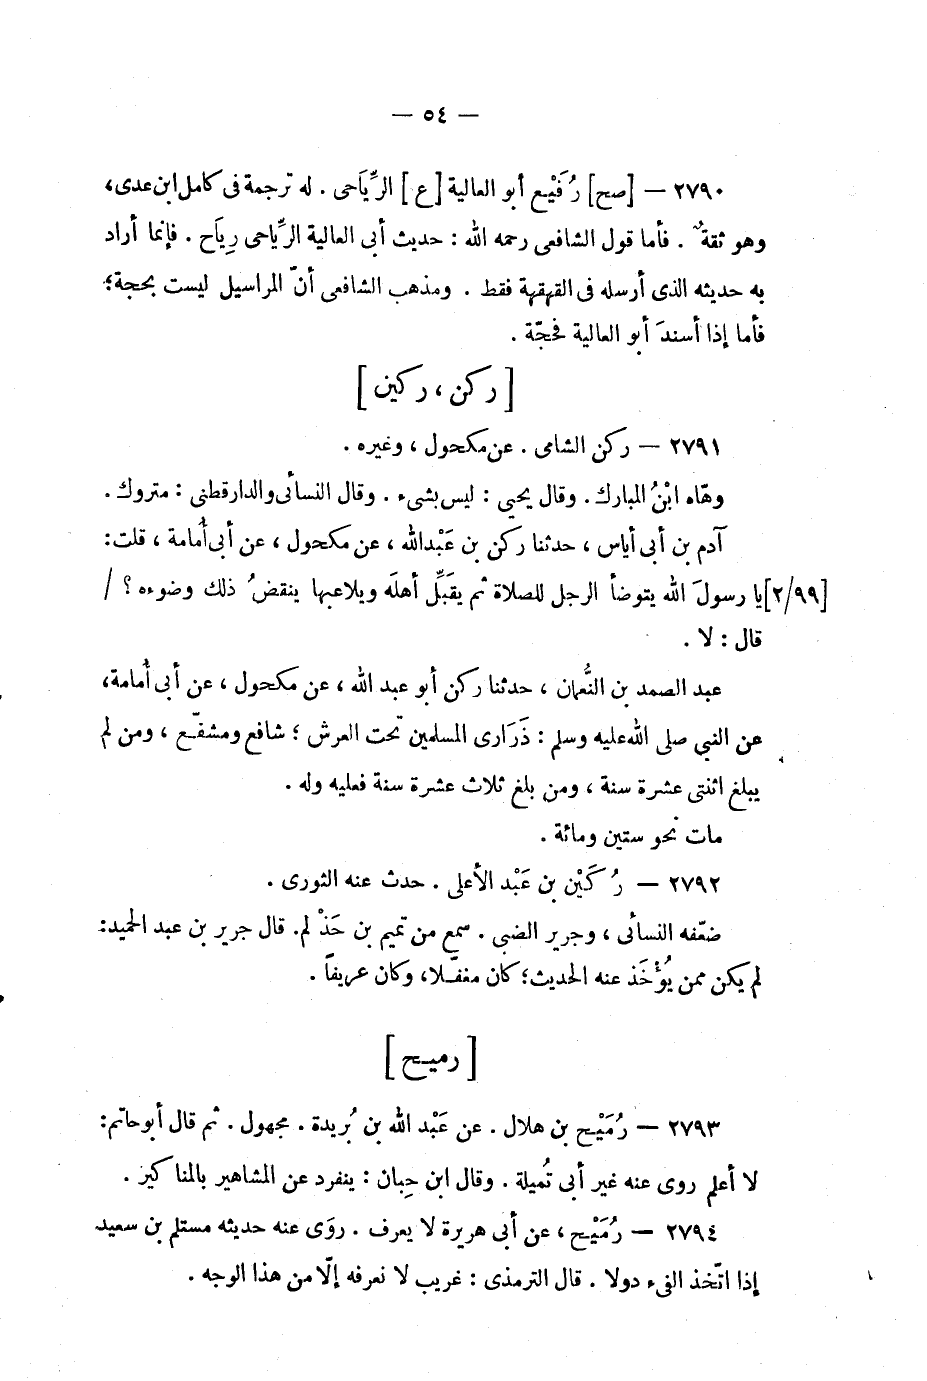 — ٥٤ —
٢٧٩٠ — [صح] رُفَيْع أبو العالية [ع] الرِّيَاحى . له ترجمة فى كامل ابن عدى،
وهو ثقةٌ . فأما قول الشافعى رحمه الله : حديث أبى العالية الرِّياحى رِيَاح . فإنما أراد
به حديثه الذى أرسله فى القهقهة فقط . ومذهب الشافعى أنّ المراسيل ليست بحجة؛
فأما إذا أسندَ أبو العالية فحجّة .
[ ركن ، ركين ]
٢٧٩١ — ركن الشامى . عن مكحول ، وغيره .
وهّاه ابْنُ المبارك . وقال يحيى : ليس بشىء . وقال النسائى والدارقطنى : متروك .
آدم بن أبى أياس ، حدثنا ركن بن عَبْد الله ، عن مكحول ، عن أبى أُمامة ، قلت:
[٢/٩٩] يا رسولَ الله يتوضأ الرجل للصلاة ثم يقبِّل أهلَه ويلاعبها ينقضُ ذلك وضوءه ؟ /
قال : لا .
عبد الصمد بن النُّعمان ، حدثنا ركن أبو عبد الله ، عن مكحول ، عن أبى أُمامة،
عن النبي صلى الله عليه وسلم : ذَرَارى المسلمين تحت العرش ؛ شافع ومشفّع ، ومن لم
يبلغ اثنتى عشرة سنة ، ومن بلغ ثلاث عشرة سنة فعليه وله .
مات نحو ستين ومائة .
٢٧٩٢ — رُكَيْن بن عَبْد الأعلى . حدث عنه الثورى .
ضعّفه النسائى ، وجرير الضبى . سمع من تميم بن حَذْلم. قال جرير بن عبد الحميد:
لم يكن ممن يُؤْخَذ عنه الحديث؛ كان مغفّلا، وكان عريفاً .
[ رميح ]
٢٧٩٣ — رُمَيْح بن هلال . عن عَبْد الله بن بُريدة . مجهول . ثم قال أبو حاتم:
لا أعلم روى عنه غير أبى تُميلة . وقال ابن حِبان : ينفرد عن المشاهير بالمناكير .
٢٧٩٤ — رُمَيْح ، عن أبى هريرة لا يعرف . روَى عنه حديثه مستلم بن سعيد
إذا اتّخذ الفىء دولا . قال الترمذى : غريب لا نعرفه إلّا من هذا الوجه .